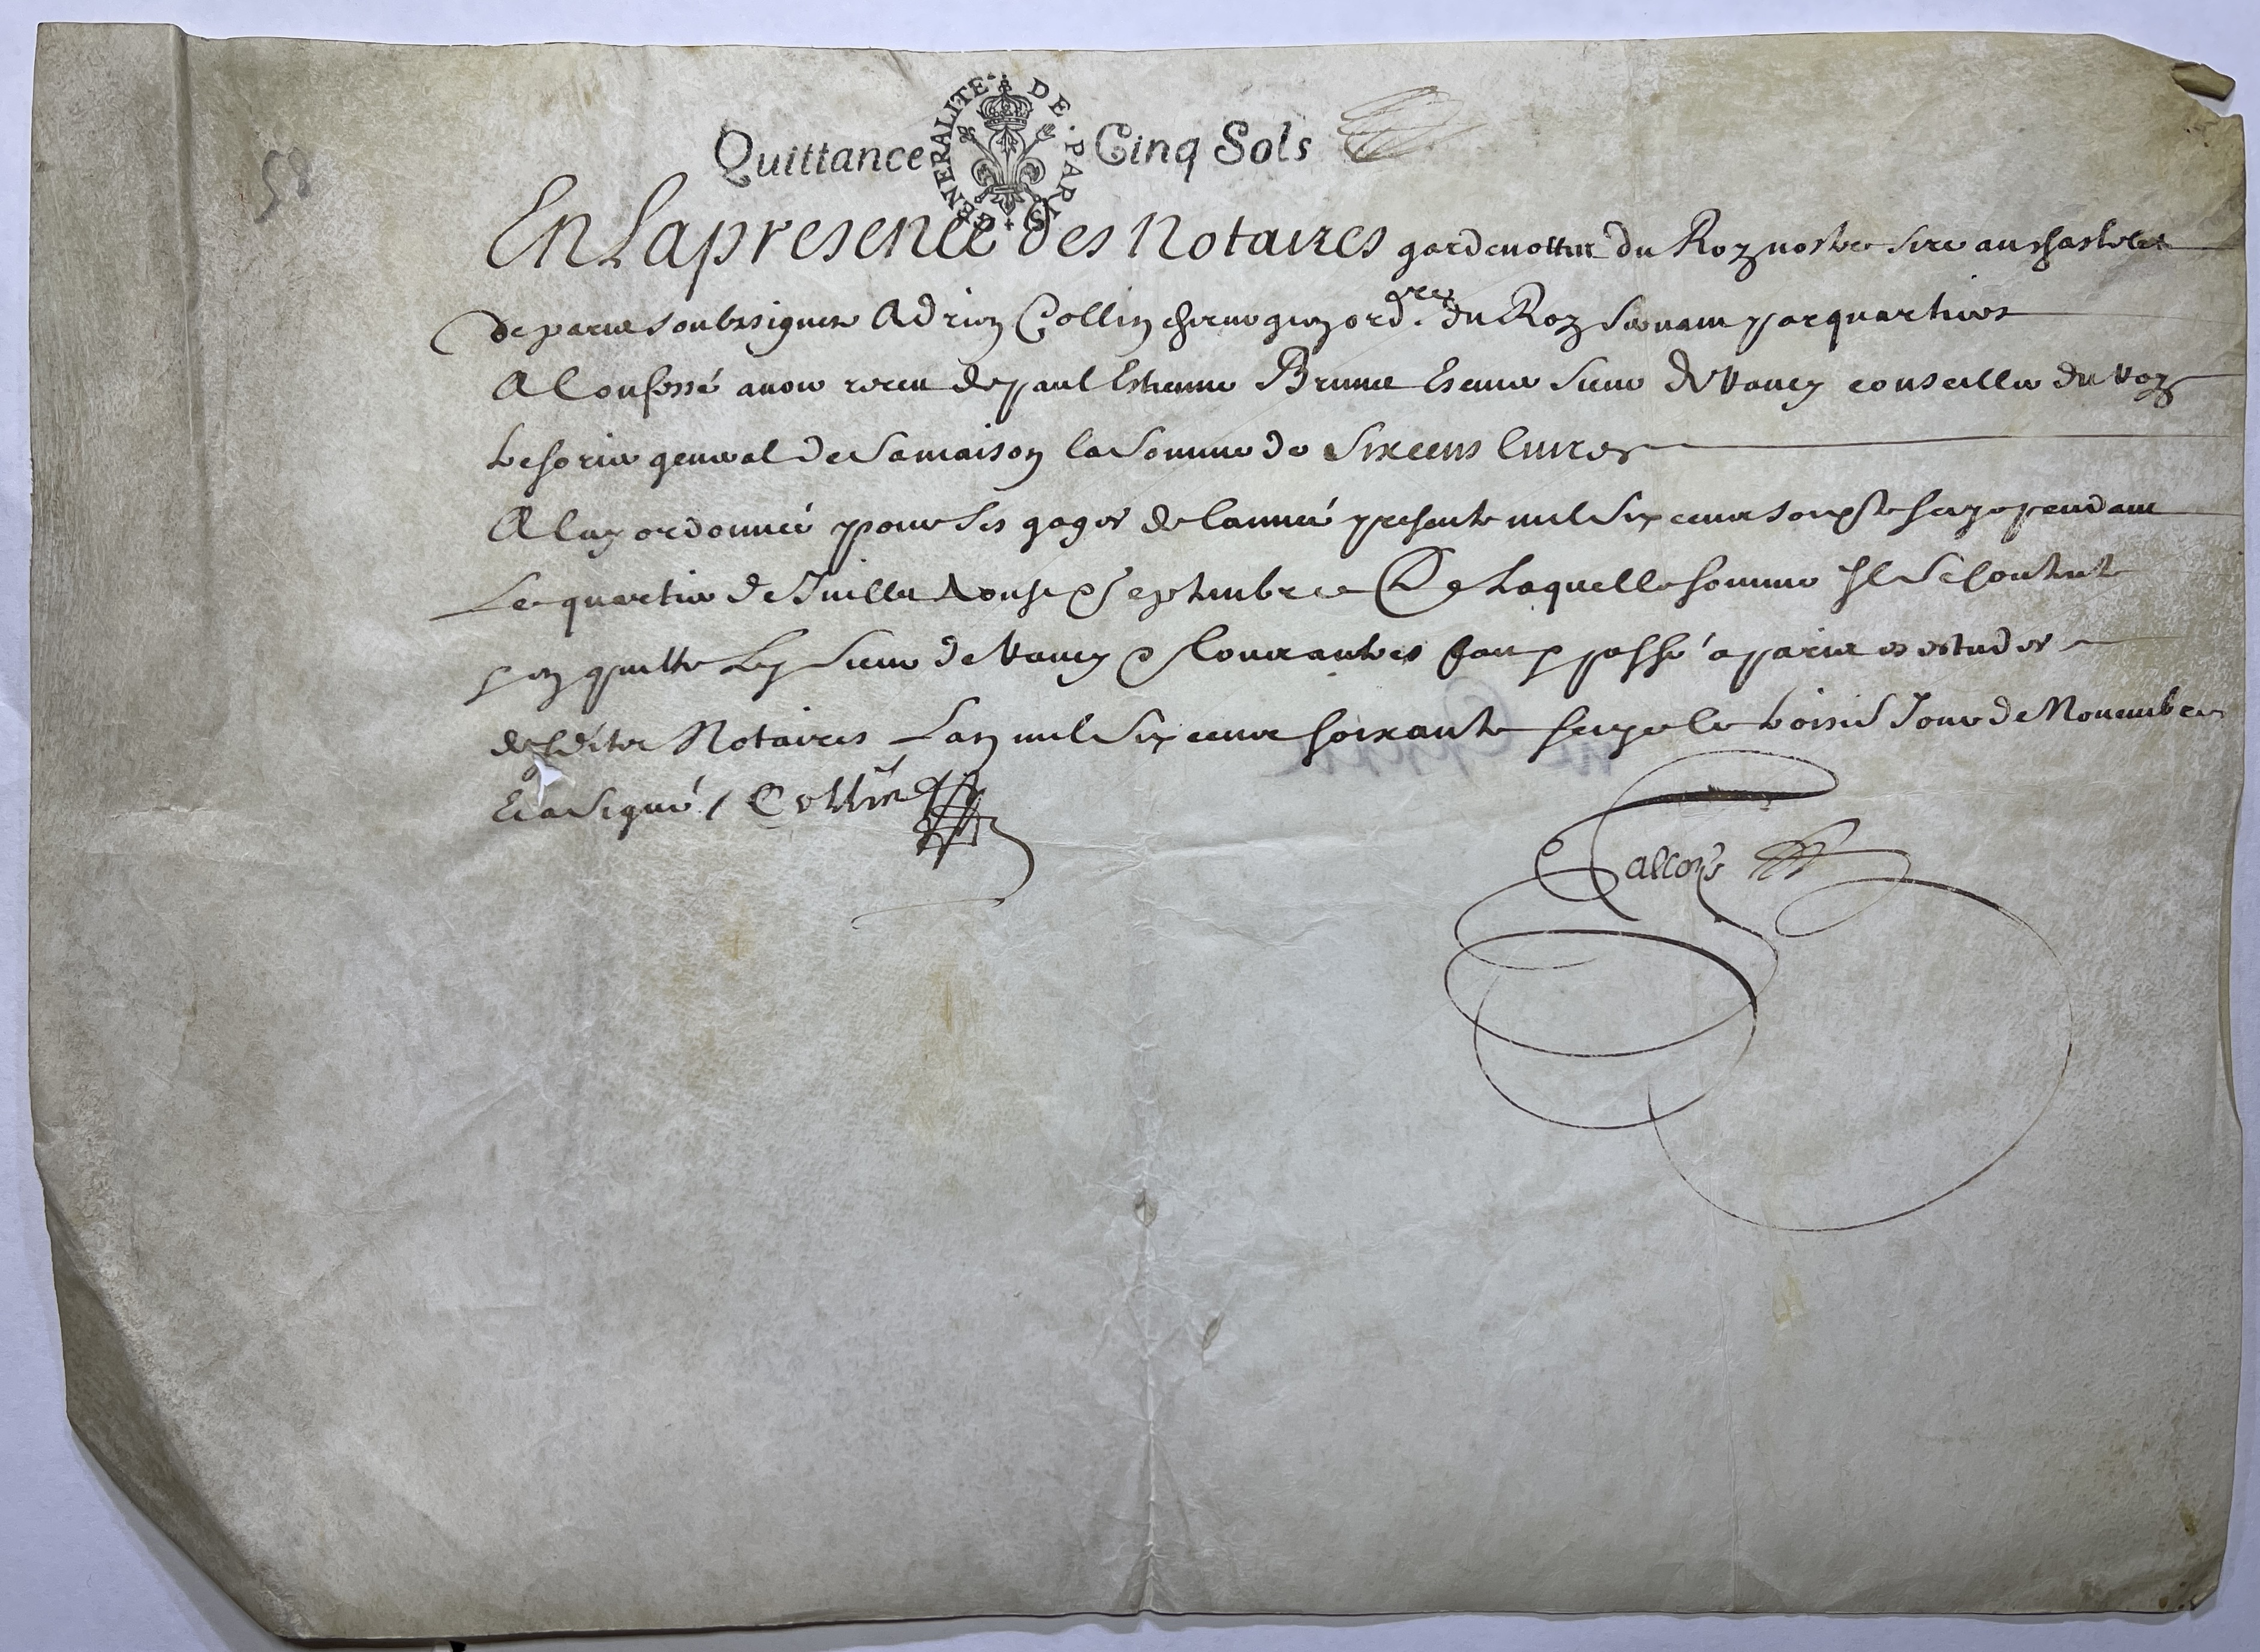 58
Quittance GENERALITE DE PARIS Cinq Sols
En La presence des Notaires gardenottes du Roy nostre Sire au chastelet
de paris soubssignez Adrien Collin chirurgien ord.re du Roy servant par quartier
A Confessé avoir receu de paul Estienne Brunet Escuier Sieur de Rancy conseiller du roy
tresorier general de Sa maison la Somme de Six cens livres
A luy ordonneé pour Ses gages de lanneé presente mil Six cens soixte seize pendant
Le quartier de Juillet Aoust & Septembre De Laquelle somme Il Se Contente
en quitte Led Sieur de Rancy & tous autres fait & passé a paris es estudes
desdites Notaires Lan mil Six cens soixante seize le troisie Jour de Novembre
Et a Signé / Collin